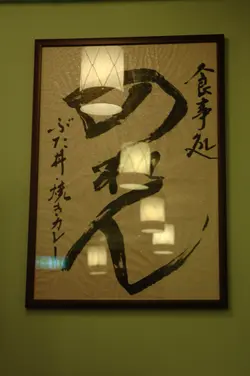 食事処
のれん
ぶた丼・焼きカレー